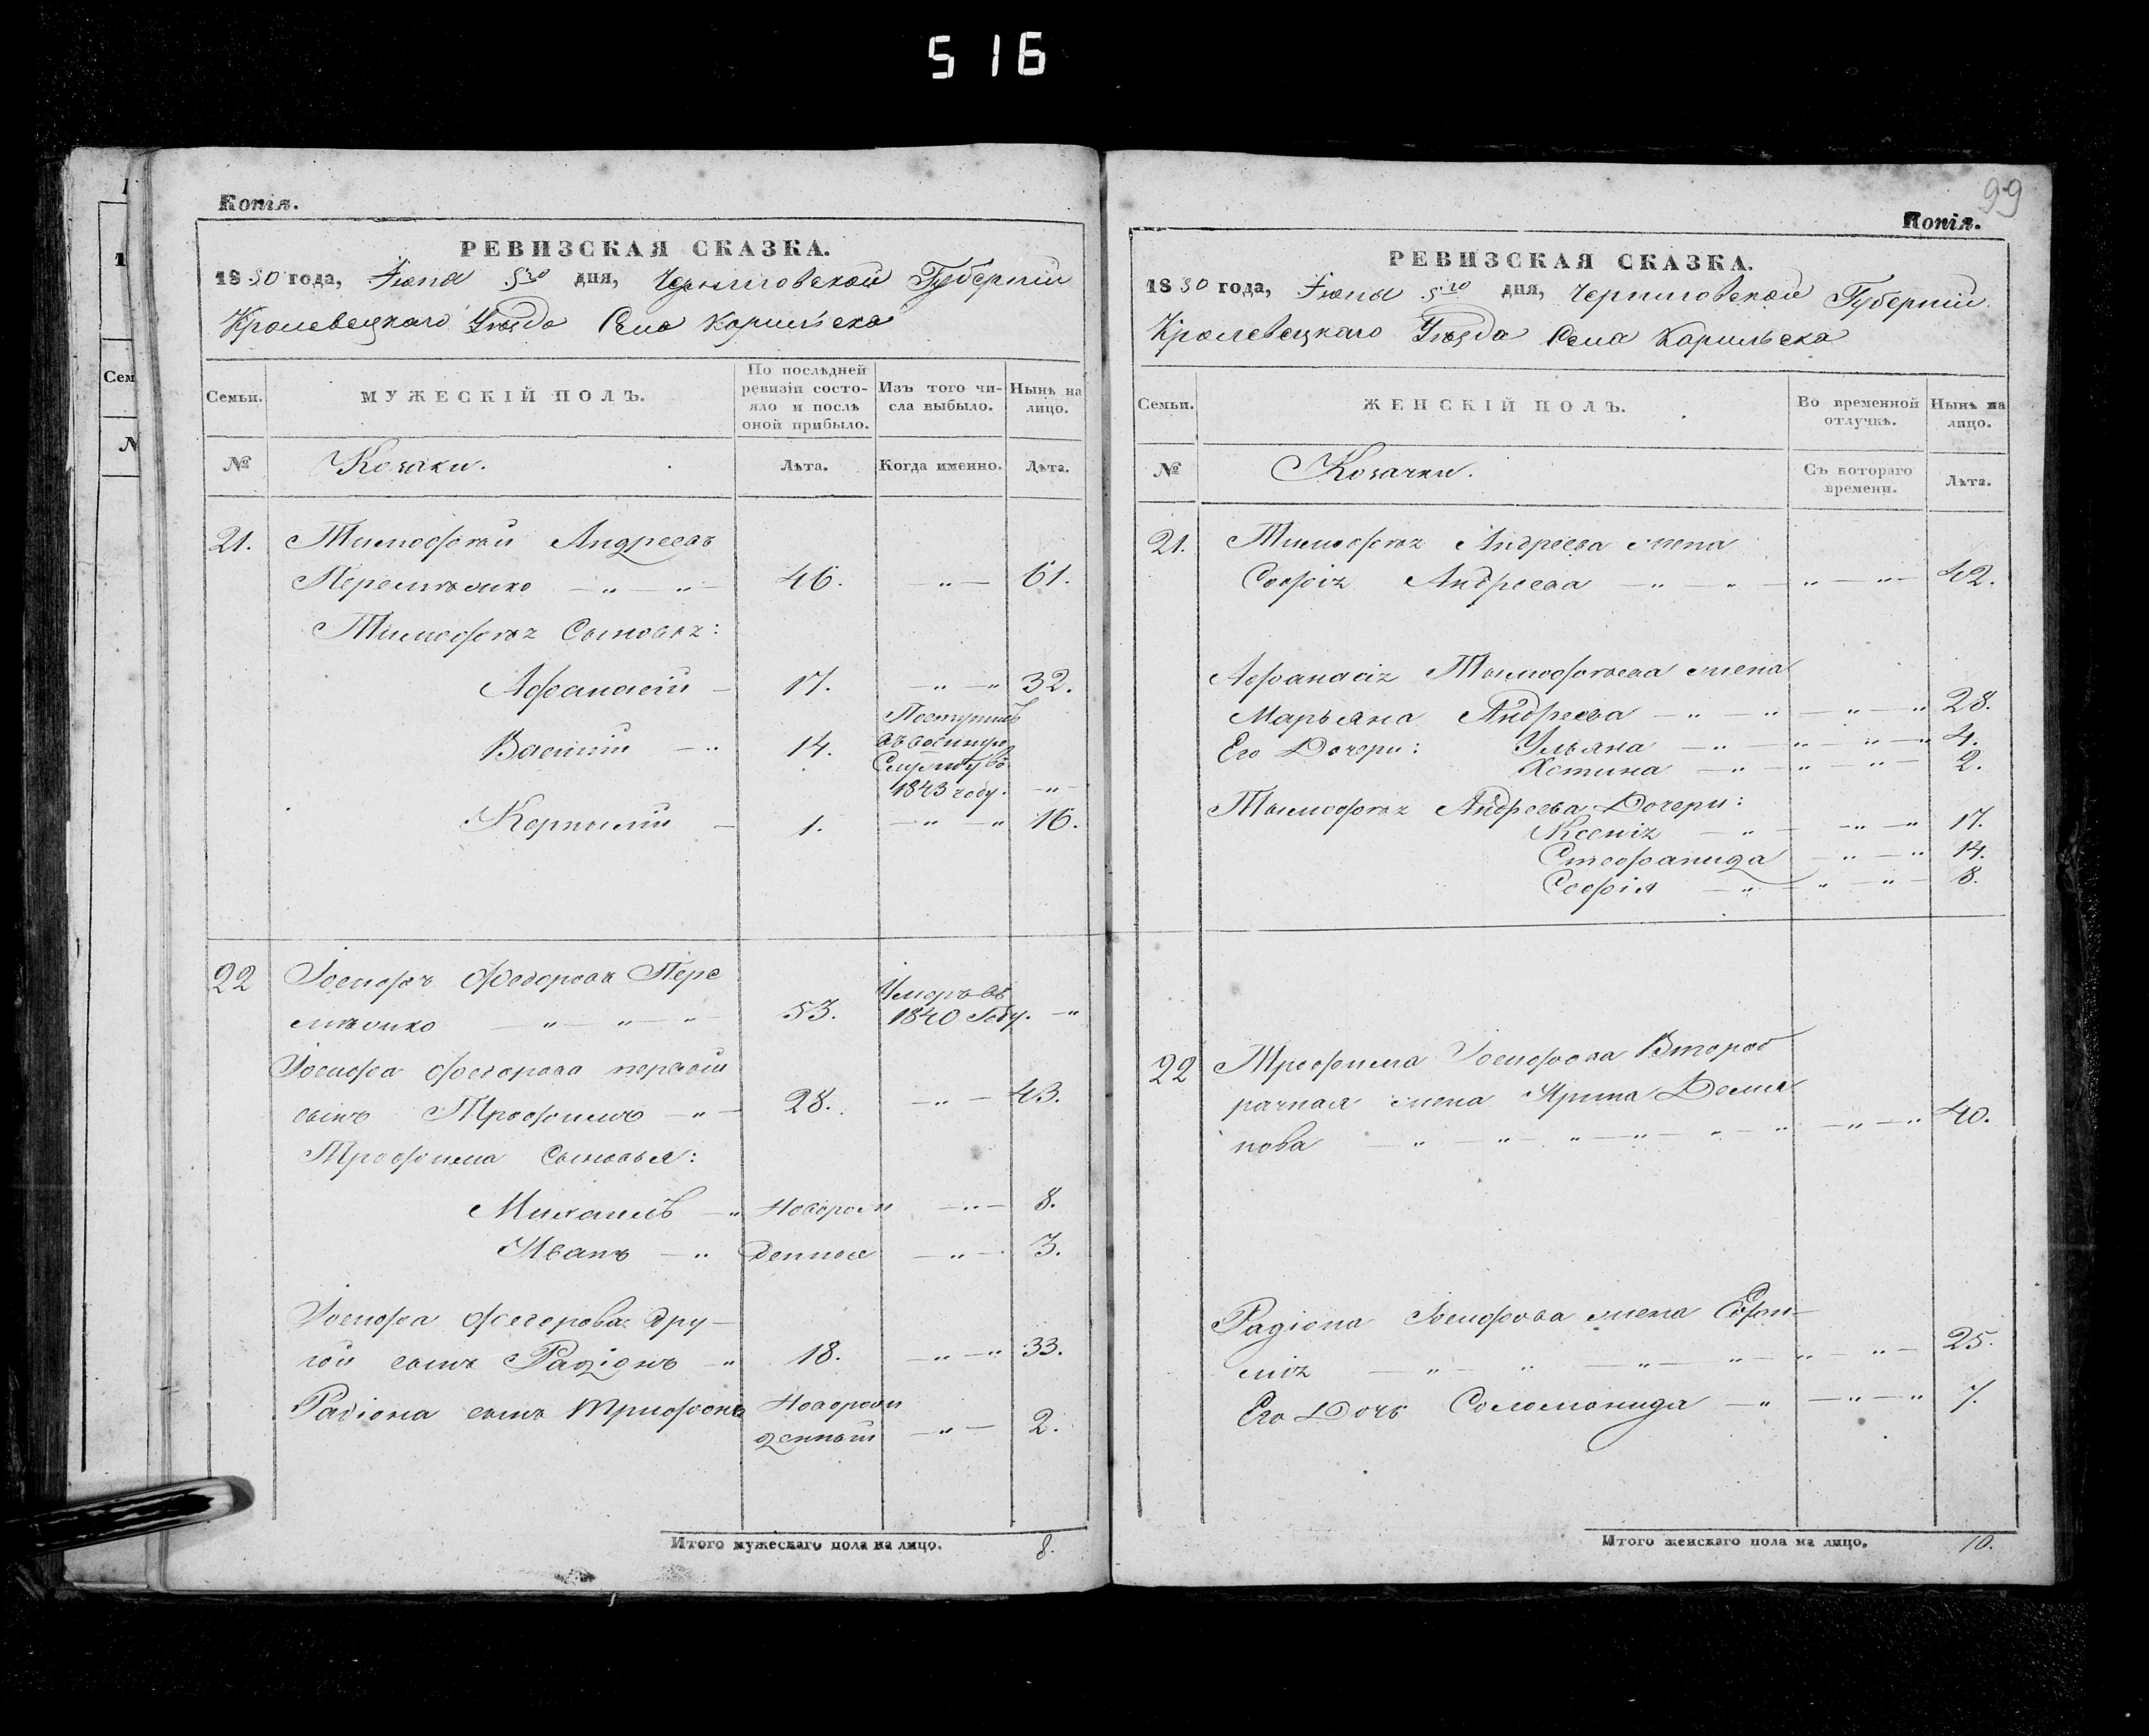 516
Копія.
РЕВИЗСКАЯ СКАЗКА.
1850 года, Июня 5го дня, Черниговской Губерніи
Кролевецкаго Уѣзда Села Карильска
Семьи. МУЖЕСКІЙ ПОЛЪ. По послѣдней ревизіи состояло и послѣ оной прибыло. Изъ того числа выбыло. Нынѣ на лицо.
№ Козаки. Лѣта. Когда именно. Лѣта.
21. Тимофѣй Андреевъ
46. — „ — 61.
Тимофѣя Сыновья:
Афанасій — 17. — „ — „ 32.
Василій — „ 14. Поступилъ
въ военную
Службу въ
1843 году. — „ —
1. — „ — „ 16.
22 Іосифъ Федоровъ Пере
53. Умеръ въ
1840 Году. — „
Іосифа Федорова первый
сынъ Трофимъ — „ — 28. — „ — 43.
Трофима Сыновья:
Михаилъ — „ Новорож — „ — 8.
Иванъ — „ денные — „ — 3.
Іосифа Федорова дру—
гой сынъ Радіонъ — „ 18. — „ — „ 33.
Радіона сынъ Трифонъ Новорож
денный — „ — 2.
Итого мужескаго пола на лицо. 8.
99
Копія.
РЕВИЗСКАЯ СКАЗКА.
1850 года, Июня 5го дня, Черниговской Губерніи
Кролевецкаго Уѣзда Села Карильска
Семьи. ЖЕНСКІЙ ПОЛЪ. Во временной отлучкѣ. Нынѣ на лицо.
№ Козачки. Съ котораго времени. Лѣта.
21. Тимофѣя Андреева жена
Софія Андреева — „ — „ — „ — „ — 42.
Афанасія Тымофѣева жена
Марьяна Андреева — „ — „ — „ — „ 28.
Его Дочери: Ульяна — „ — „ — „ — „ 4.
— „ — „ — „ — 2.
Тымофѣя Андреева Дочери:
Ксенія — „ — „ — „ 17.
Стефанида — „ — „ 14.
Софія — „ — „ — „ — 8.
22 Трофима Іосифова Второб
рачная жена Ирина Демья
нова — „ — „ — „ — „ — „ — „ — „ — „ 40.
Радіона Іосифова жена Ефи—
мія — „ — „ — „ — „ — „ — „ — 25.
Его Дочь Соломонида — „ — „ — „ 7.
Итого женскаго пола на лицо. 10.